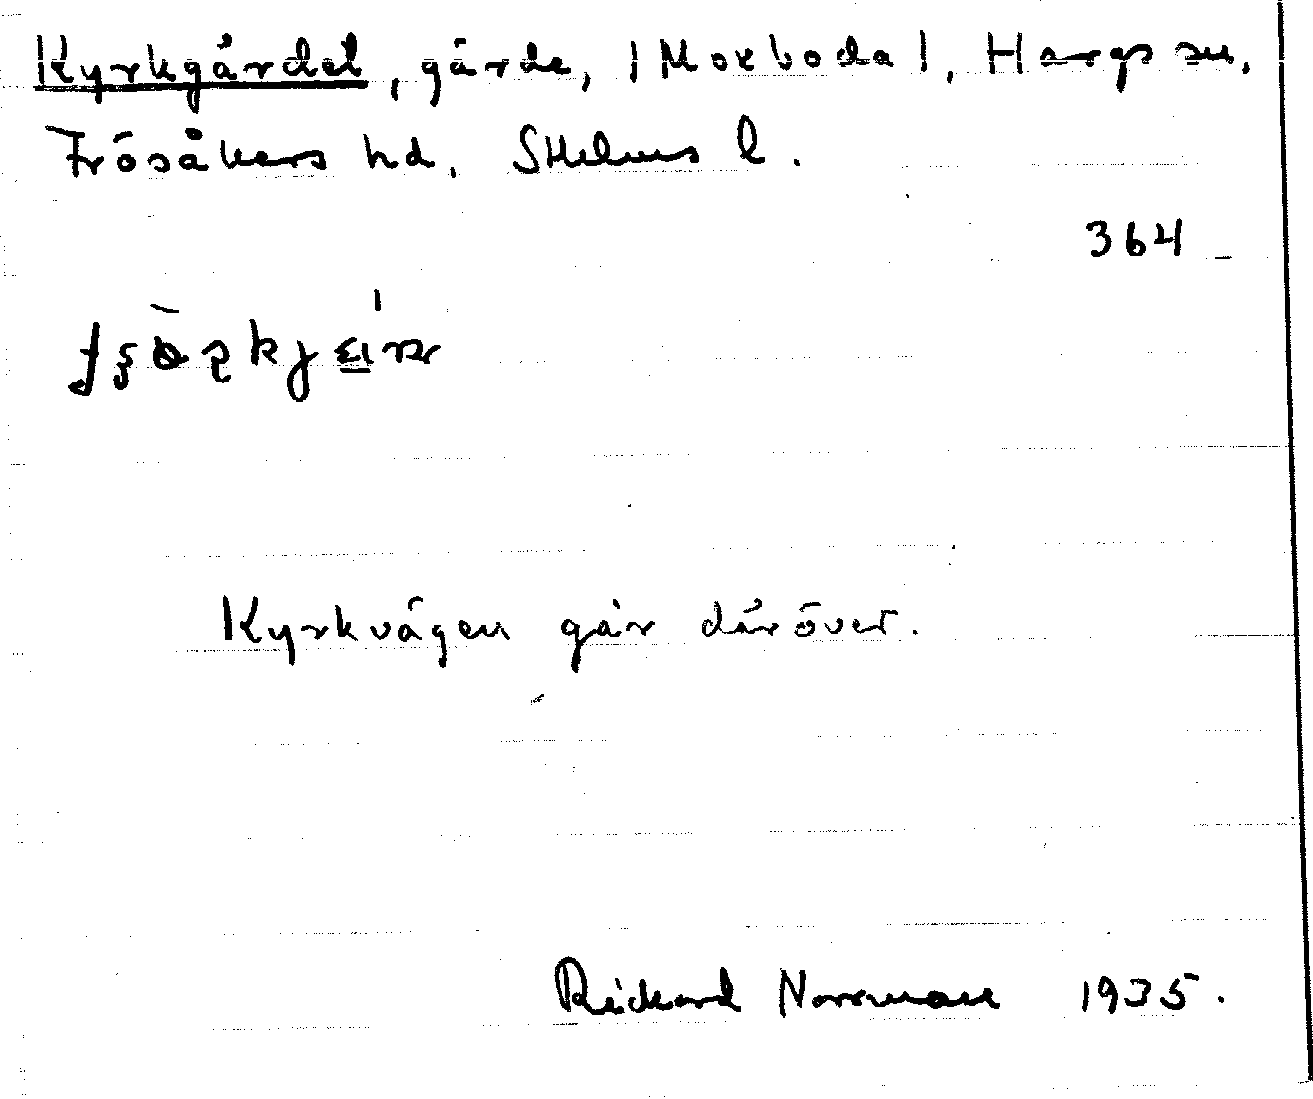 Kyrkgärdet, gärde, (Morboda), Hargs sn,
Frösåkers hd. Sthlms l.
364
Kyrkvägen går däröver.
Rickard Norrman 1935.